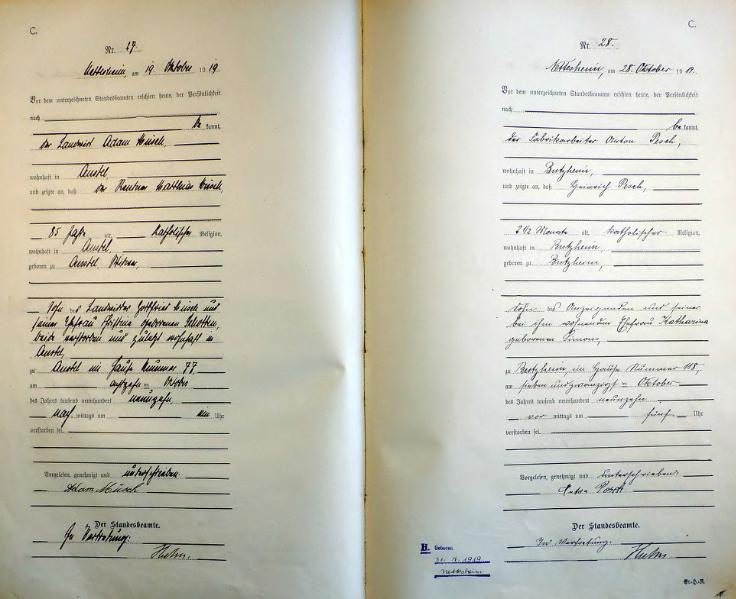 C.
Nr. 27.
Nettesheim, am 19. Oktober 1919
Vor dem unterzeichneten Standesbeamten erschien heute, der Persönlichkeit
nach
be kannt,
der Landwirt Adam Müsch,
wohnhaft in Anstel,
und zeigte an, daß der Rentner Matthias Müsch,
85 Jahre alt, katholischer Religion,
wohnhaft in Anstel,
geboren zu Anstel,
Sohn des Landwirts Gottfried Müsch und
seiner Ehefrau Christina geborenen
beide verstorben und zuletzt wohnhaft in
Anstel,
zu Anstel im Hause Nummer 77
am achtzehnten Oktober
des Jahres tausend neunhundert neunzehn
nach mittags um ein Uhr
verstorben sei.
Vorgelesen, genehmigt und unterschrieben.
Adam Müsch
Der Standesbeamte.
In Vertretung:
C.
Nr. 28.
Nettesheim, am 28. Oktober 19 19.
Vor dem unterzeichneten Standesbeamten erschien heute, der Persönlichkeit
nach
be kannt,
der Fabrikarbeiter Anton Pesch,
wohnhaft in Butzheim,
und zeigte an, daß Heinrich Pesch,
2 1/2 Monate alt, katholischer Religion,
wohnhaft in Butzheim,
geboren zu Butzheim,
Sohn des Anzeigenden und seiner
bei ihm wohnenden Ehefrau Katharina
geborenen Simon,
zu Butzheim, im Hause Nummer 118,
am siebenundzwanzigsten Oktober
des Jahres tausend neunhundert neunzehn
vor mittags um fünf Uhr
verstorben sei.
Vorgelesen, genehmigt und unterschrieben.
Der Standesbeamte.
In Vertretung.
H. Geboren:
1919
Nettesheim